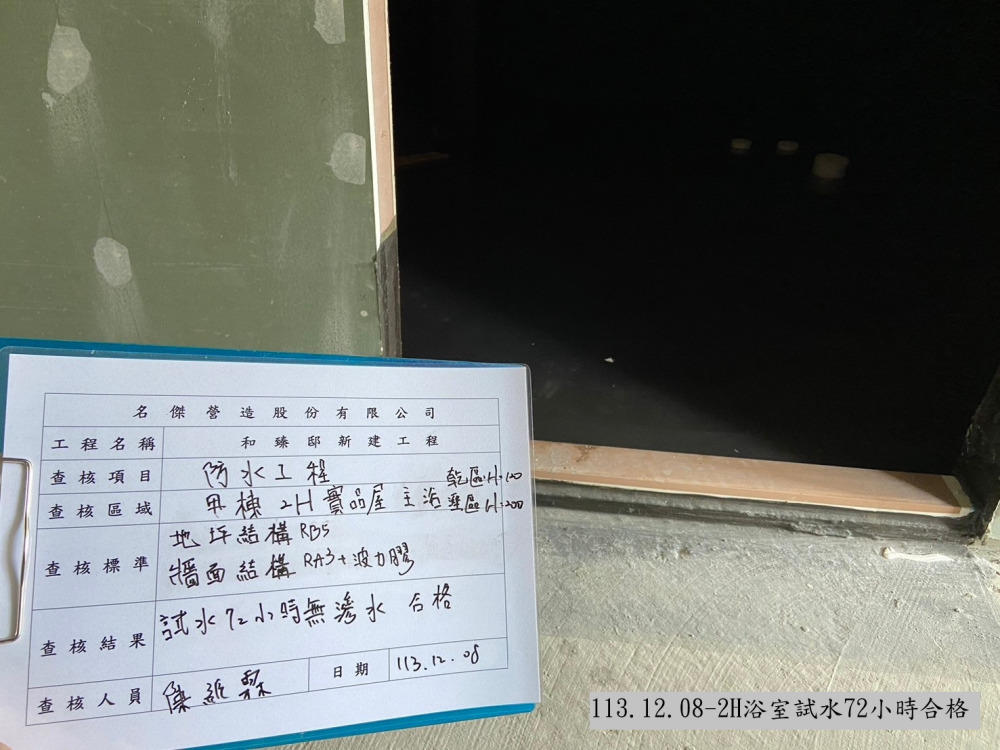 名傑營造股份有限公司
工程名稱 和臻邸新建工程
查核項目 防水工程
乾區:H:100
查核區域 甲棟 2H 實品屋 主浴
區 H:200
查核標準 地坪結構 RB5
牆面結構 RA3+波力膠
查核結果 試水72小時無滲水 合格
查核人員 日期 113.12.08
113.12.08-2H浴室試水72小時合格